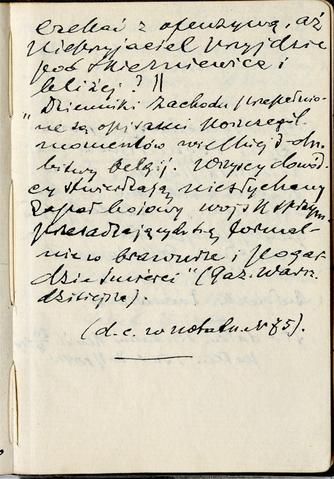 czekać z ofenzywą, aż
nieprzyjaciel przyjdzie
pod Skierniewice i
bliżej? ||
"Dzienniki zachodu przepełnio-
ne są opisami poszczegól.
momentów wielkiej 3-dn.
bitwy belgij. Wszyscy dowód-
cy stwierdzają niesłychany
zapał bojowy wojsk sprzym.
przesadzających się formal-
nie w brawurze i pogar-
dzie śmierci" (Gaz. Warsz.
dzisiejsza).
(d. c. w notatn. № 75).